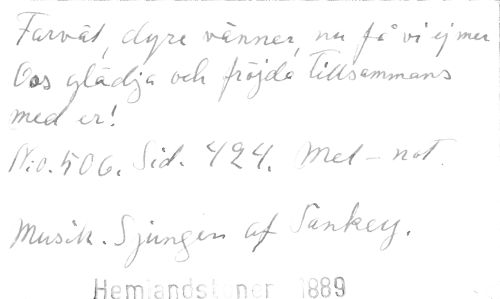 Farväl, dyre vänner, nu få vi ej mer
Oss glädja och fröjda tillsammans
med er!
No. 506. Sid. 424. Mel-not.
Musik. Sjungen af Sankey.
Hemlandstoner 1889